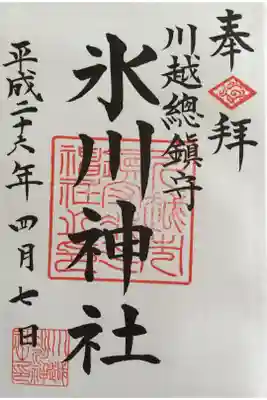 奉拝
川越總鎮守
氷川神社
平成二十六年四月七日